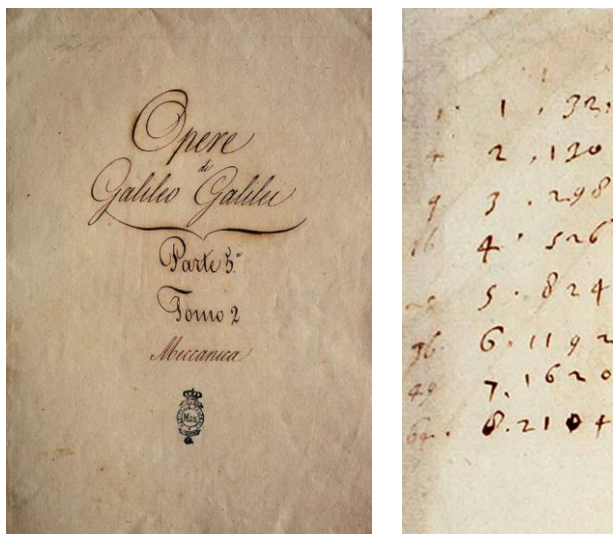 Opere
di
Galileo Galilei
Parte 5.ª
Tomo 2
Meccanica
1. 1 . 32.
4 2 . 130
9 3 . 298
16 4 . 526
5 . 824
36. 6. 1192
49 7. 1620
64. 8. 2104